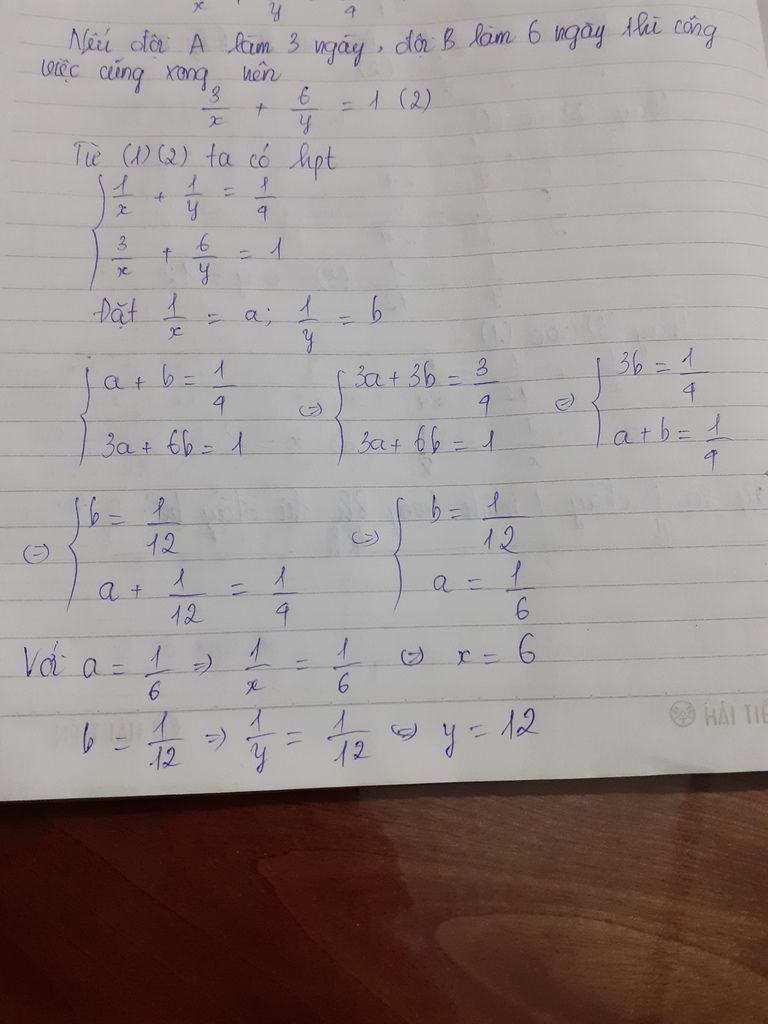 x y 4
Nếu đội A làm 3 ngày, đội B làm 6 ngày thì công
việc cũng xong nên
3/x + 6/y = 1 (2)
Từ (1)(2) ta có hpt
{ 1/x + 1/y = 1/4
3/x + 6/y = 1
Đặt 1/x = a; 1/y = b
{ a + b = 1/4 (=) { 3a + 3b = 3/4 (=) { 3b = 1/4
3a + 6b = 1 3a + 6b = 1 a + b = 1/4
(=) { b = 1/12 (=) { b = 1/12
a + 1/12 = 1/4 a = 1/6
Với a = 1/6 => 1/x = 1/6 (=) x = 6
b = 1/12 => 1/y = 1/12 (=) y = 12
HẢI TIẾ